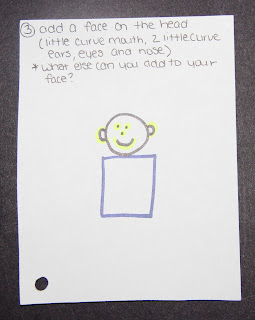 ③ add a face on the head
(little curve mouth, 2 little curve
ears, eyes and nose)
* what else can you add to your
face?